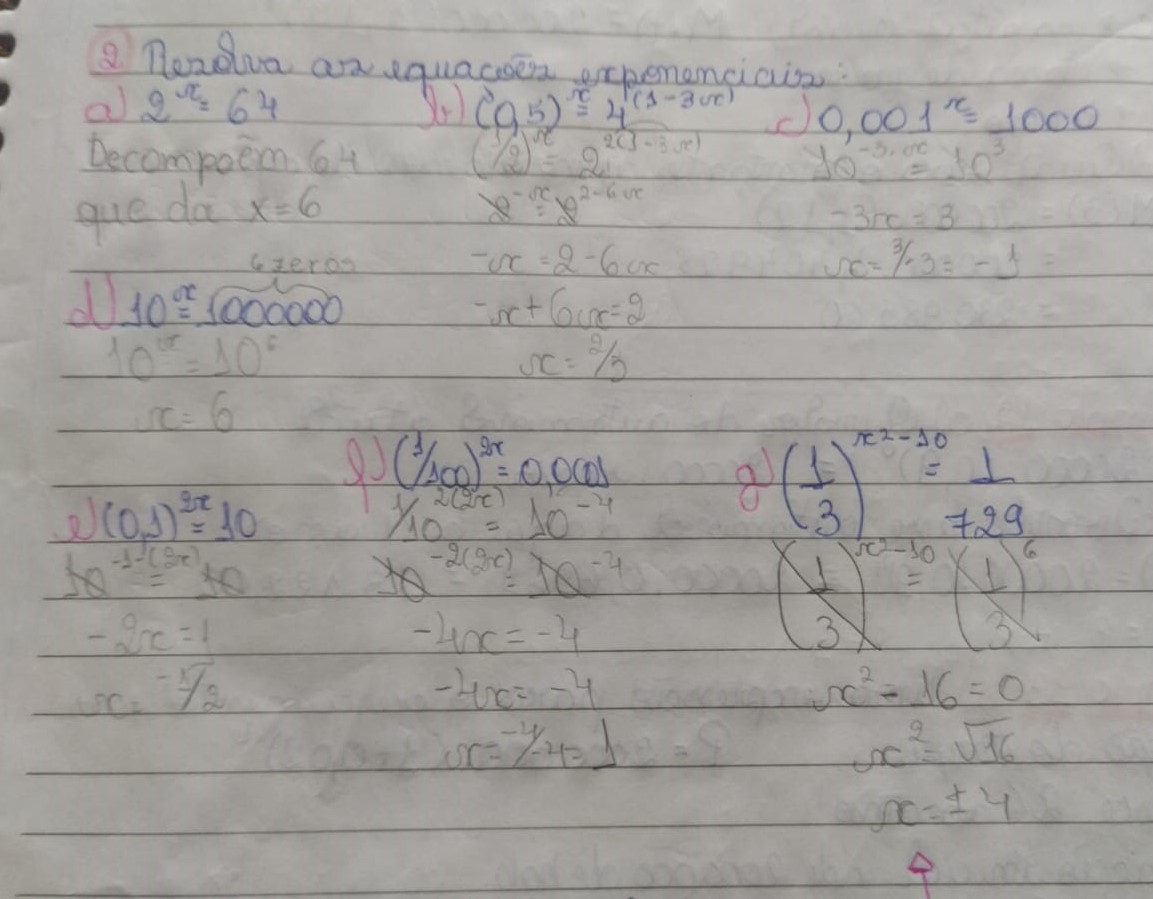 2 Resolva as equações exponenciais:
a) 2^x = 64
Decompoẽm 64
que dá x=6
b) (0,5)^x = 4^(1-3x)
(1/2)^x = 2^2(1-3x)
2^-x = 2^2-6x
-x = 2-6x
-x+6x=2
x = 2/5
c) 0,001^x = 1000
10^-3·x = 10^3
-3x = 3
x = 3/-3 = -1
6 zeros
d) 10^x = 1000000
10^x = 10^6
x = 6
e) (0,1)^2x = 10
10^-1·(2x) = 10
-2x = 1
x = -1/2
f) (1/100)^2x = 0,0001
1/10^2(2x) = 10^-4
10^-2(2x) = 10^-4
-4x = -4
-4x = -4
x = -4/-4 = 1
g) (1/3)^x²-10 = 1/729
(1/3)^x²-10 = (1/3)^6
x² - 16 = 0
x² = √16
x = ± 4